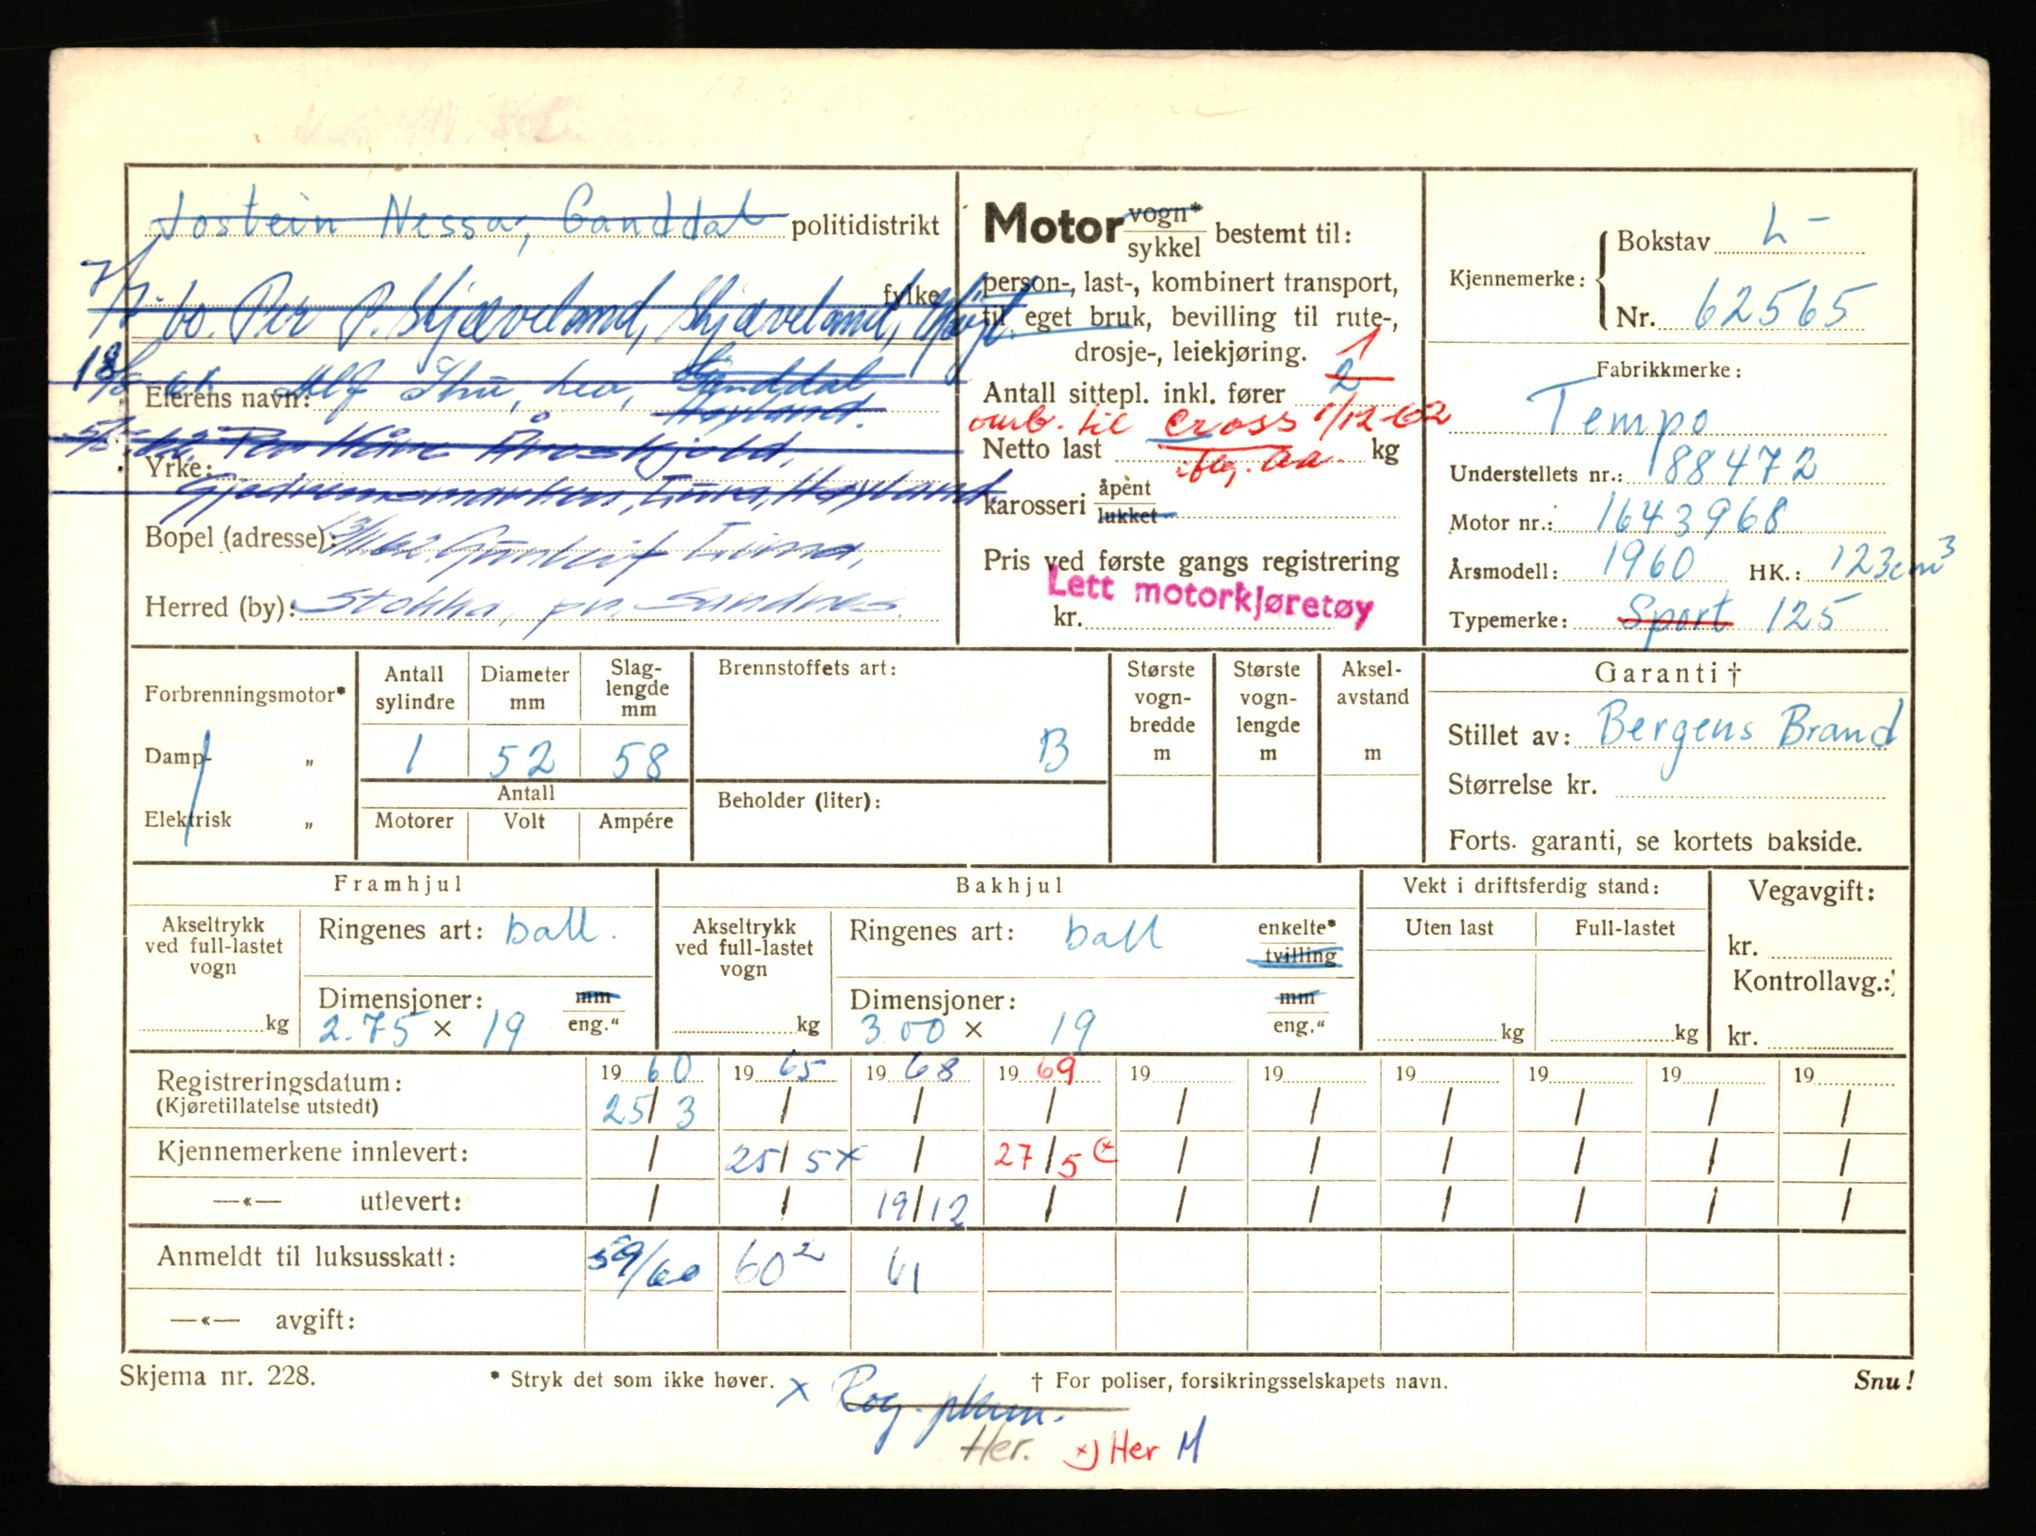 Jostein Nessa, Ganddal politidistrikt
7/7. 60. Per P. Skjæveland, Skjæveland, fylke
18/8 61. Alf
Eierens navn: Ganddal
Høyland.
Yrke:
Høyland
Bopel (adresse):
Herred (by): Stokka, pr. Sandnes.
Motor vogn* / sykkel bestemt til:
person-, last-, kombinert transport,
til eget bruk, bevilling til rute-,
drosje-, leiekjøring. 1
Antall sittepl. inkl. fører 2
omb. til cross 1/12-62
Netto last kg
karosseri åpent / lukket
Pris ved første gangs registrering
Lett motorkjøretøy
kr.
Kjennemerke: Bokstav L-
Nr. 62565
Fabrikkmerke:
Tempo
Understellets nr.: 188472
Motor nr.: 1643968
Årsmodell: 1960 HK.: 123cm³
Typemerke: Sport 125
Forbrenningsmotor*
Damp- „
Elektrisk „
Antall sylindre 1
Diameter mm 52
Slag-lengde mm 58
Antall
Motorer Volt Ampére
Brennstoffets art:
B
Beholder (liter):
Største vogn-bredde m
Største vogn-lengde m
Aksel-avstand m
Garanti †
Stillet av: Bergens Brand
Størrelse kr.
Forts. garanti, se kortets bakside.
Framhjul
Akseltrykk ved full-lastet vogn kg
Ringenes art: ball.
Dimensjoner: mm
2.75 × 19 eng."
Bakhjul
Akseltrykk ved full-lastet vogn kg
Ringenes art: ball enkelte* / tvilling
Dimensjoner: mm
3.00 × 19 eng."
Vekt i driftsferdig stand:
Uten last Full-lastet
kg kg
Vegavgift:
kr.
Kontrollavg.:
kr.
Registreringsdatum: 1960 1965 1968 1969 19 19 19 19 19 19
(Kjøretillatelse utstedt) 25/3 / / / / / / / / /
Kjennemerkene innlevert: / 25/5 x / 27/5 (* / / / / / /
—«— utlevert: / / 19/12 / / / / / / /
Anmeldt til luksusskatt: 59/60 60² 61
—«— avgift:
Skjema nr. 228. * Stryk det som ikke høver. † For poliser, forsikringsselskapets navn. Snu!
x Rog.
Her. x) Her M